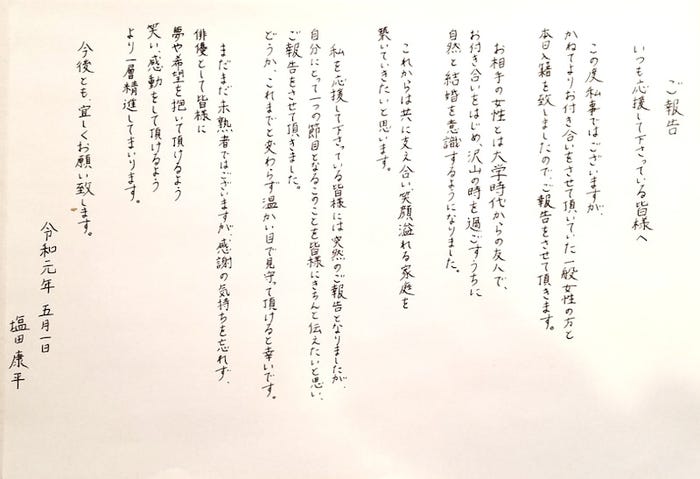 ご報告
いつも応援して下さっている皆様へ
この度私事ではございますが、
かねてよりお付き合いをさせて頂いていた一般女性の方と
本日入籍を致しましたので、ご報告をさせて頂きます。
お相手の女性とは大学時代からの友人で、
お付き合いをはじめ、沢山の時を過ごすうちに
自然と結婚を意識するようになりました。
これからは共に支え合い笑顔溢れる家庭を
築いていきたいと思います。
私を応援して下さっている皆様には突然のご報告となりましたが、
自分にとって一つの節目となるこのことを皆様にきちんと伝えたいと思い、
ご報告をさせて頂きました。
どうか、これまでと変わらず温かい目で見守って頂けると幸いです。
まだまだ未熟者ではございますが、感謝の気持ちを忘れず、
俳優として皆様に
夢や希望を抱いて頂けるよう
笑い、感動をして頂けるよう
より一層精進してまいります。
今後とも宜しくお願い致します。
令和元年 五月一日
塩田康平